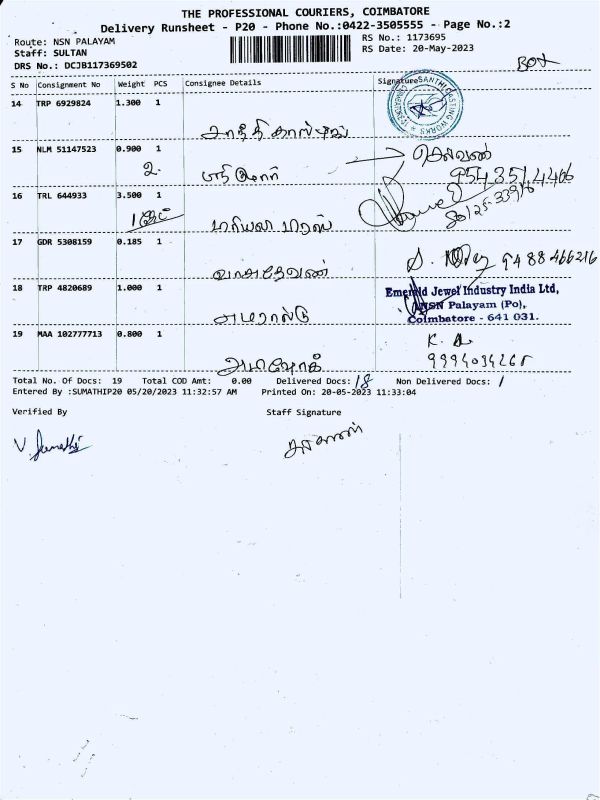 THE PROFESSIONAL COURIERS, COIMBATORE
Delivery Runsheet - P20 - Phone No.:0422-3505555 - Page No.:2
Route: NSN PALAYAM
RS No.: 1173695
Staff: SULTAN
RS Date: 20-May-2023
DRS No.: DCJB117369502
BOX
S No Consignment No Weight PCS Consignee Details Signature
14 TRP 6929824 1.300 1
SANTHI CASTING WORKS
சாந்தி காஸ்டிங்
15 NLM 51147523 0.900 1
2.
செல்வன்
16 TRL 644933 3.500 1
17 GDR 5308159 0.185 1
வாசுதேவன்
9488466216
18 TRP 4820689 1.000 1
Emerald Jewel Industry India Ltd,
NSN Palayam (Po),
Coimbatore - 641 031.
எமரால்டு
19 MAA 102777713 0.800 1
Total No. Of Docs: 19 Total COD Amt: 0.00 Delivered Docs: 18 Non Delivered Docs: 1
Entered By :SUMATHIP20 05/20/2023 11:32:57 AM Printed On: 20-05-2023 11:33:04
Verified By Staff Signature
V. Sumathi